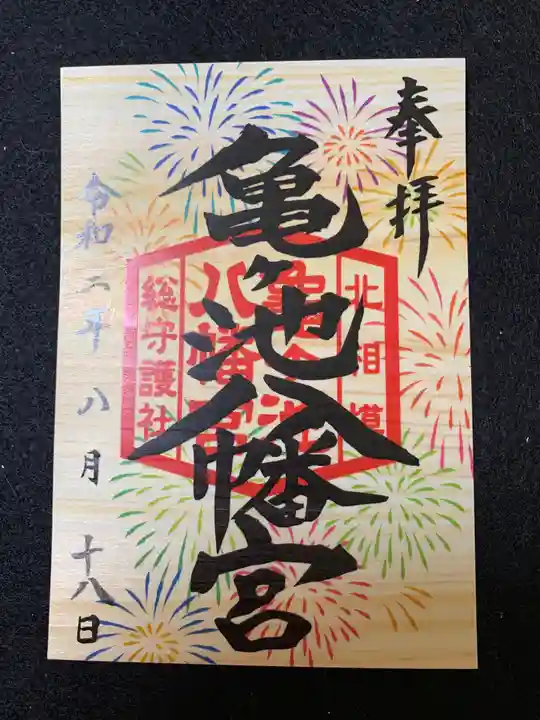 奉拝
亀ヶ池八幡宮
北相模
亀ヶ池
八幡宮
総守護社
令和二年八月十八日